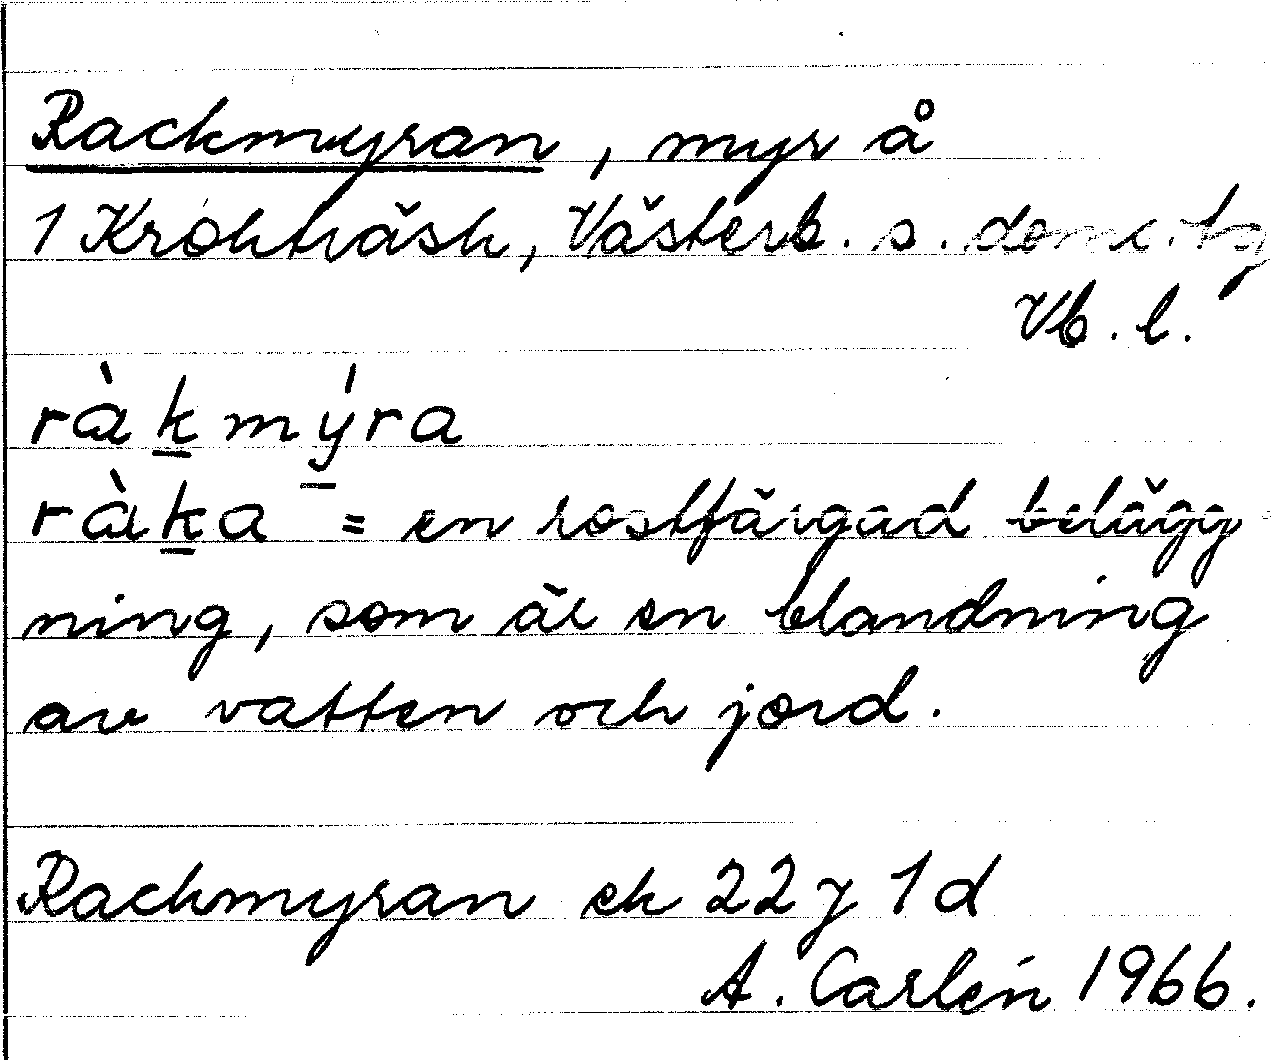 Rackmyran, myr å
1 Krokträsk, Västerb. s. doms.tg
Vb. l.
ràkmýra
ràka = en rostfärgad belägg-
ning, som är en blandning
av vatten och jord.
Rackmyran ek 22 J 1 d
A. Carlén 1966.